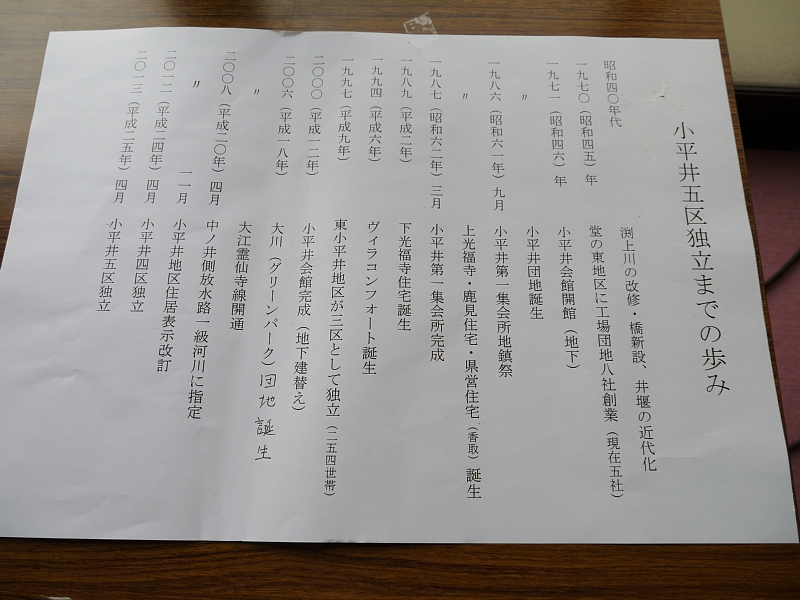 小平井五区独立までの歩み
昭和四〇年代 渕上川の改修・橋新設、井堰の近代化
一九七〇(昭和四五)年 堂の東地区に工場団地八社創業(現在五社)
一九七一(昭和四六)年 小平井会館開館(地下)
〃 小平井団地誕生
一九八六(昭和六一年)九月 小平井第一集会所地鎮祭
〃 上光福寺・鹿見住宅・県営住宅(香取)誕生
一九八七(昭和六二年)三月 小平井第一集会所完成
一九八九(平成二年) 下光福寺住宅誕生
一九九四(平成六年) ヴィラコンフォート誕生
一九九七(平成九年) 東小平井地区が三区として独立(二五四世帯)
二〇〇〇(平成一二年) 小平井会館完成(地下建替え)
二〇〇六(平成一八年) 大川(グリーンパーク)団地誕生
〃 大江霊仙寺線開通
二〇〇八(平成二〇年)四月 中ノ井側放水路一級河川に指定
〃 一一月 小平井地区住居表示改訂
二〇一二(平成二四年)四月 小平井四区独立
二〇一三(平成二五年)四月 小平井五区独立